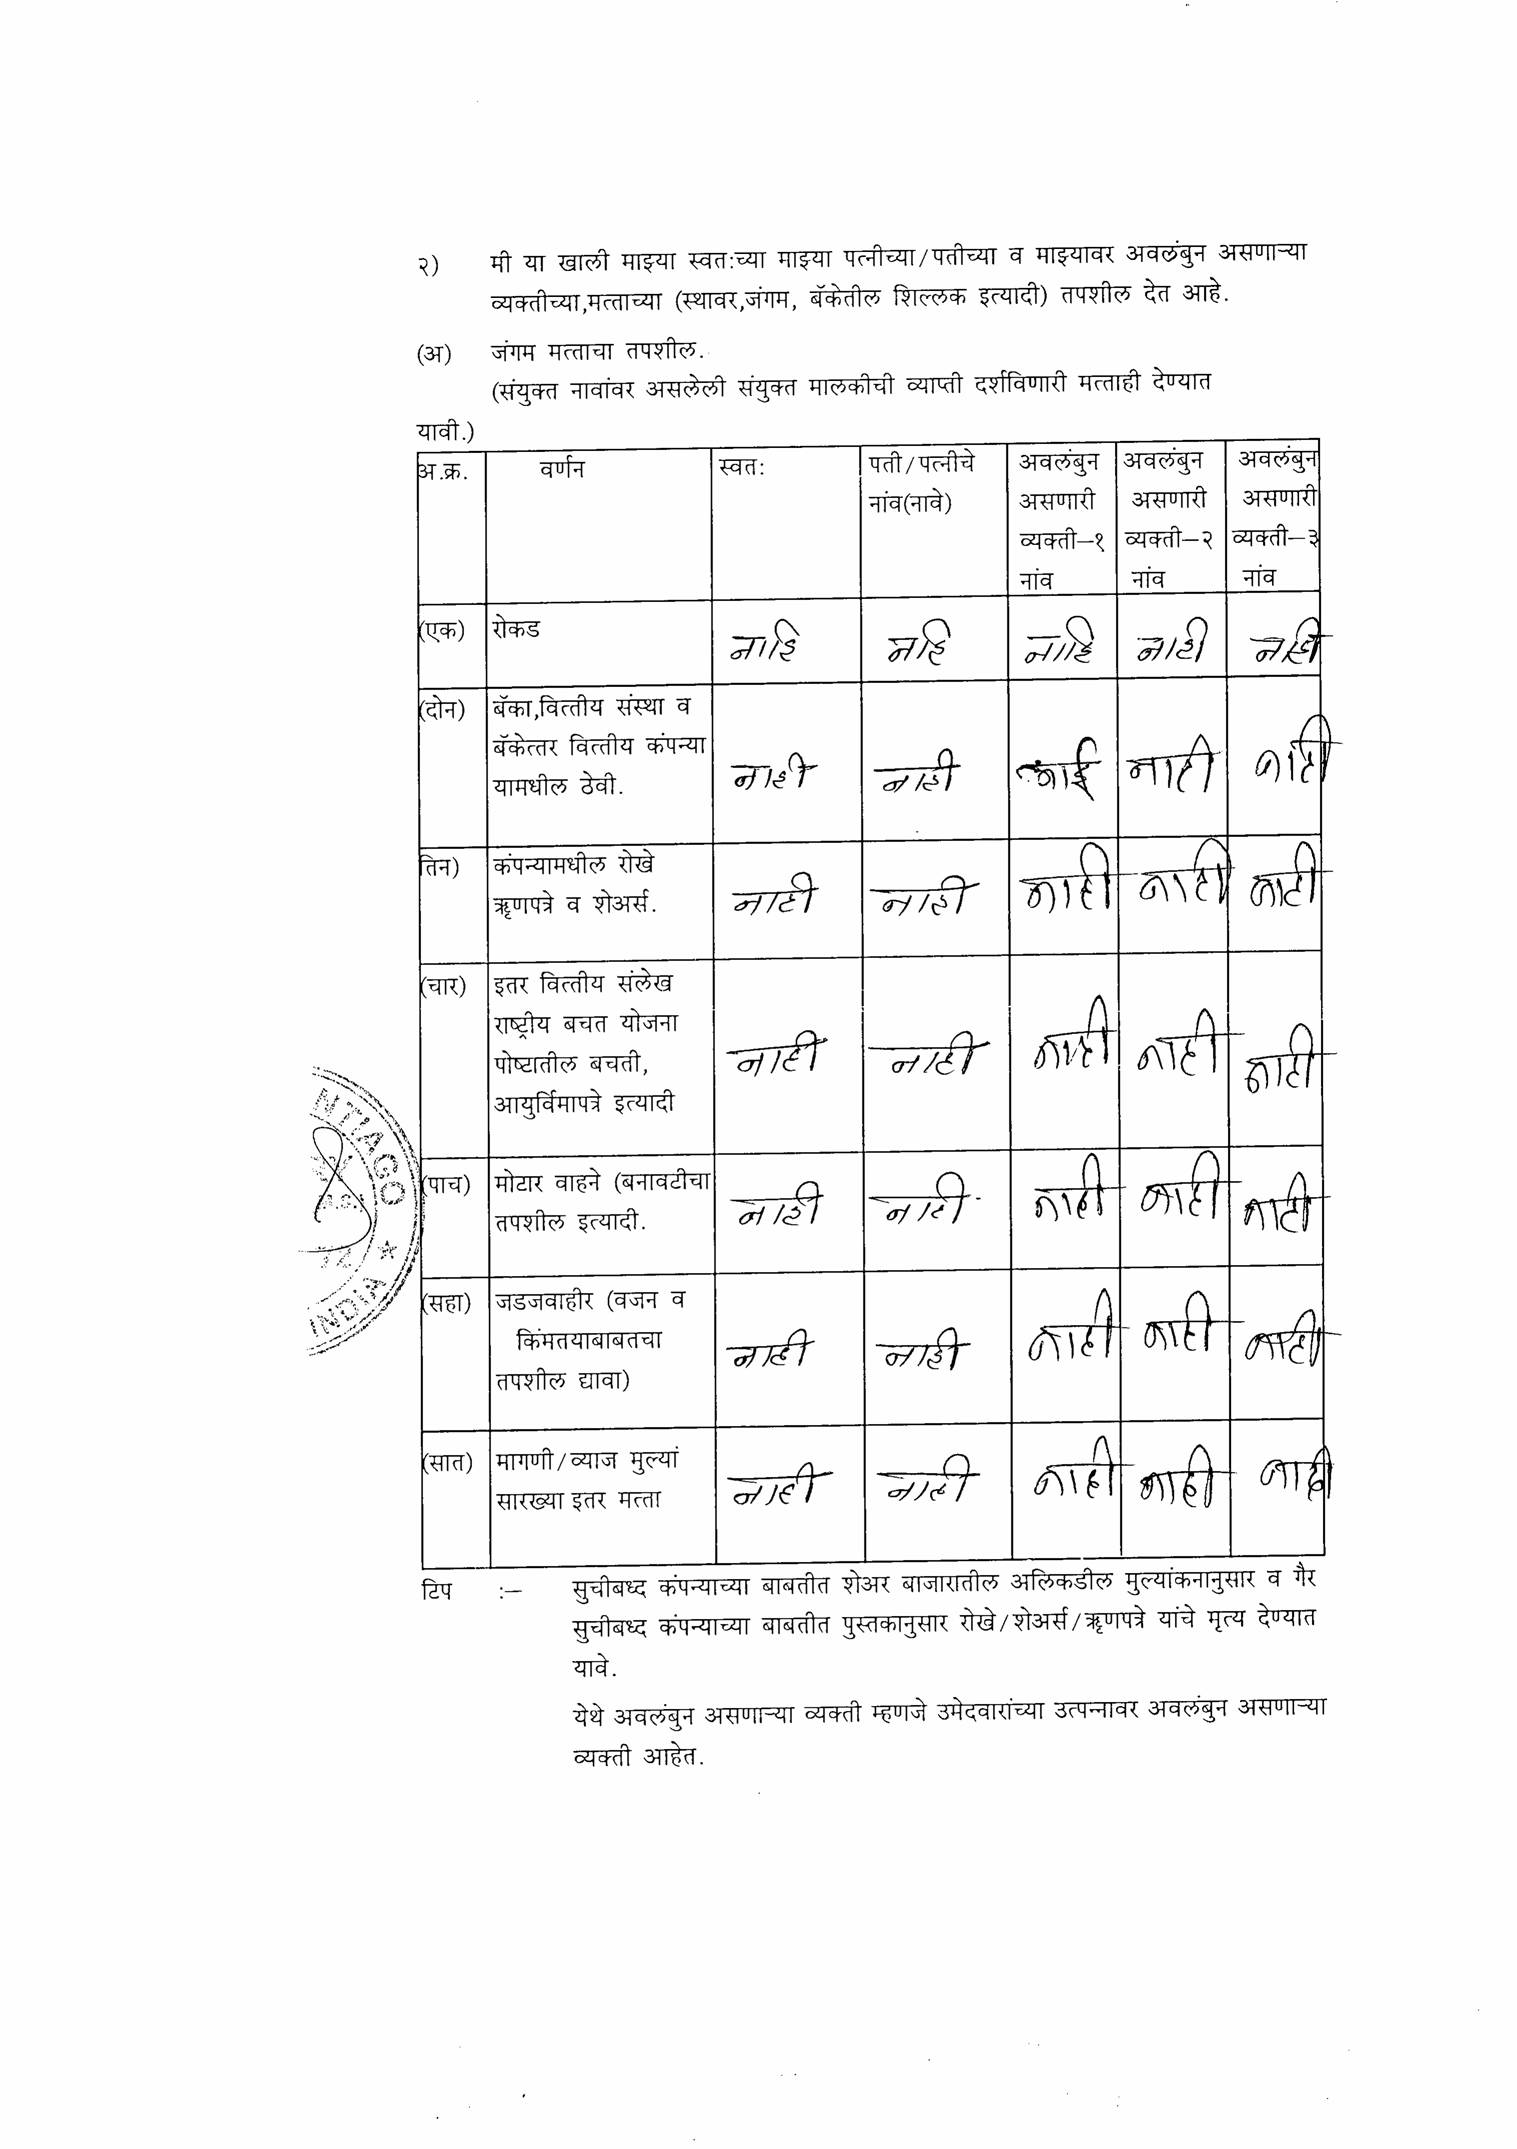 २) मी या खाली माझ्या स्वत:च्या माझ्या पत्नीच्या/पतीच्या व माझ्यावर अवलंबुन असणाऱ्या
व्यक्तीच्या,मत्ताच्या (स्थावर,जंगम, बॅकेतील शिल्लक इत्यादी) तपशील देत आहे.
(अ) जंगम मत्ताचा तपशील.
(संयुक्त नावांवर असलेली संयुक्त मालकीची व्याप्ती दर्शविणारी मत्ताही देण्यात
यावी.)
अ.क्र. वर्णन स्वत: पती/पत्नीचे अवलंबुन अवलंबुन अवलंबुन
नांव(नावे) असणारी असणारी असणारी
व्यक्ती–१ व्यक्ती–२ व्यक्ती–३
नांव नांव नांव
(एक) रोकड नाहि नहि नाहि नाही नाही
(दोन) बॅका,वित्तीय संस्था व
बॅकेत्तर वित्तीय कंपन्या
यामधील ठेवी. नाही नाही नाही नाही
तिन) कंपन्यामधील रोखे
ॠणपत्रे व शेअर्स. नाही नाही नाही नाही नाही
(चार) इतर वित्तीय संलेख
राष्ट्रीय बचत योजना
पोष्टातील बचती, नाही नाही नाही नाही नाही
आयुर्विमापत्रे इत्यादी
(पाच) मोटार वाहने (बनावटीचा
तपशील इत्यादी. नाही नाही नाही नाही नाही
(सहा) जडजवाहीर (वजन व
किंमतयाबाबतचा नाही नाही नाही नाही नाही
तपशील द्यावा)
(सात) मागणी/व्याज मुल्यां
सारख्या इतर मत्ता नाही नाही नाही नाही नाही
टिप :– सुचीबध्द कंपन्याच्या बाबतीत शेअर बाजारातील अलिकडील मुल्यांकनानुसार व गैर
सुचीबध्द कंपन्याच्या बाबतीत पुस्तकानुसार रोखे/शेअर्स/ॠणपत्रे यांचे मृत्य देण्यात
यावे.
येथे अवलंबुन असणाऱ्या व्यक्ती म्हणजे उमेदवारांच्या उत्पन्नावर अवलंबुन असणाऱ्या
व्यक्ती आहेत.
NTIAGO
★
INDIA